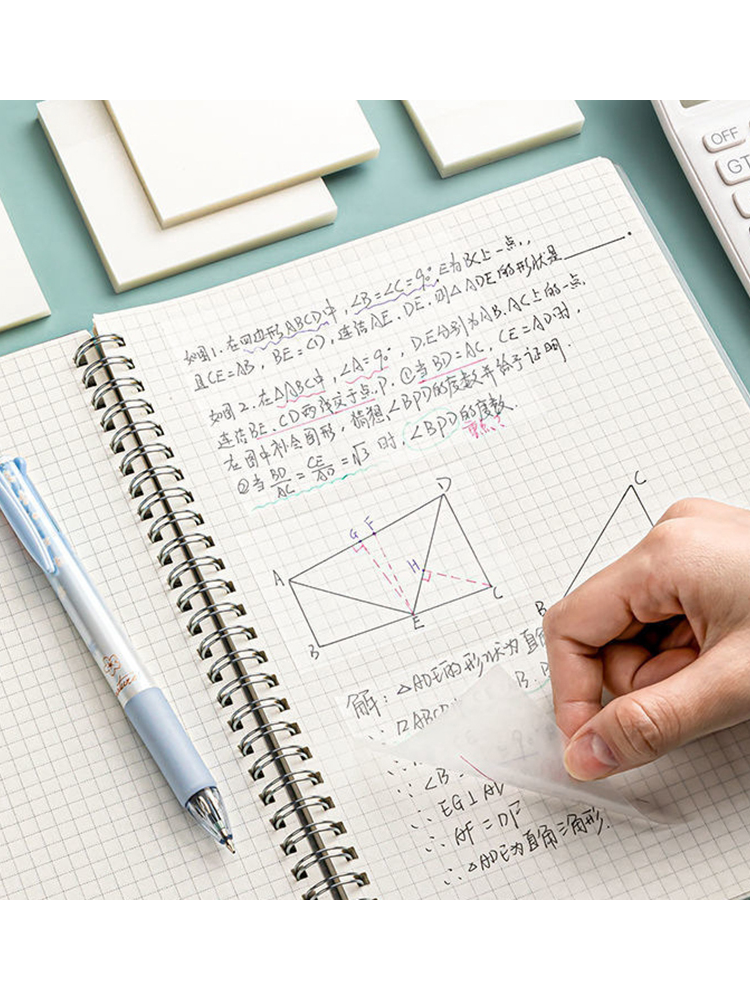 OFF
GT
如图1.在四边形ABCD中,∠B=∠C=90°,E为BC上一点,
且CE=AB,BE=CD,连结AE、DE,则△ADE的形状是______.
如图2.在△ABC中,∠A=90°,D.E分别为AB.AC上的一点,
连结BE、CD两线交于点P.①当BD=AC,CE=AD时,
在图中补全图形,猜想∠BPD的度数并给予证明.
②当BD/AC=CE/AD=√3时,∠BPD的度数.
重点
D
G F
A H C
E
B
C
B
解:△ADE的形状为直角
∴ □ABCD
∴
∴ ∠B
∴ EG⊥AD
∴ AF=DF
∴ △ADE为直角三角形.